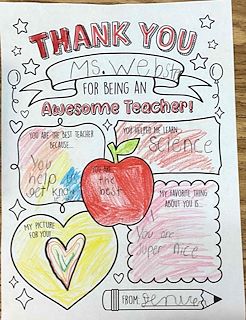 THANK YOU
Ms. Webster
FOR BEING AN
Awesome Teacher!
YOU ARE THE BEST TEACHER
BECAUSE...
You
help
get know
YOU HELPED ME LEARN
science
YOU ARE
the
best
MY PICTURE
FOR YOU!
MY FAVORITE THING
ABOUT YOU IS...
You are
super nice
FROM: